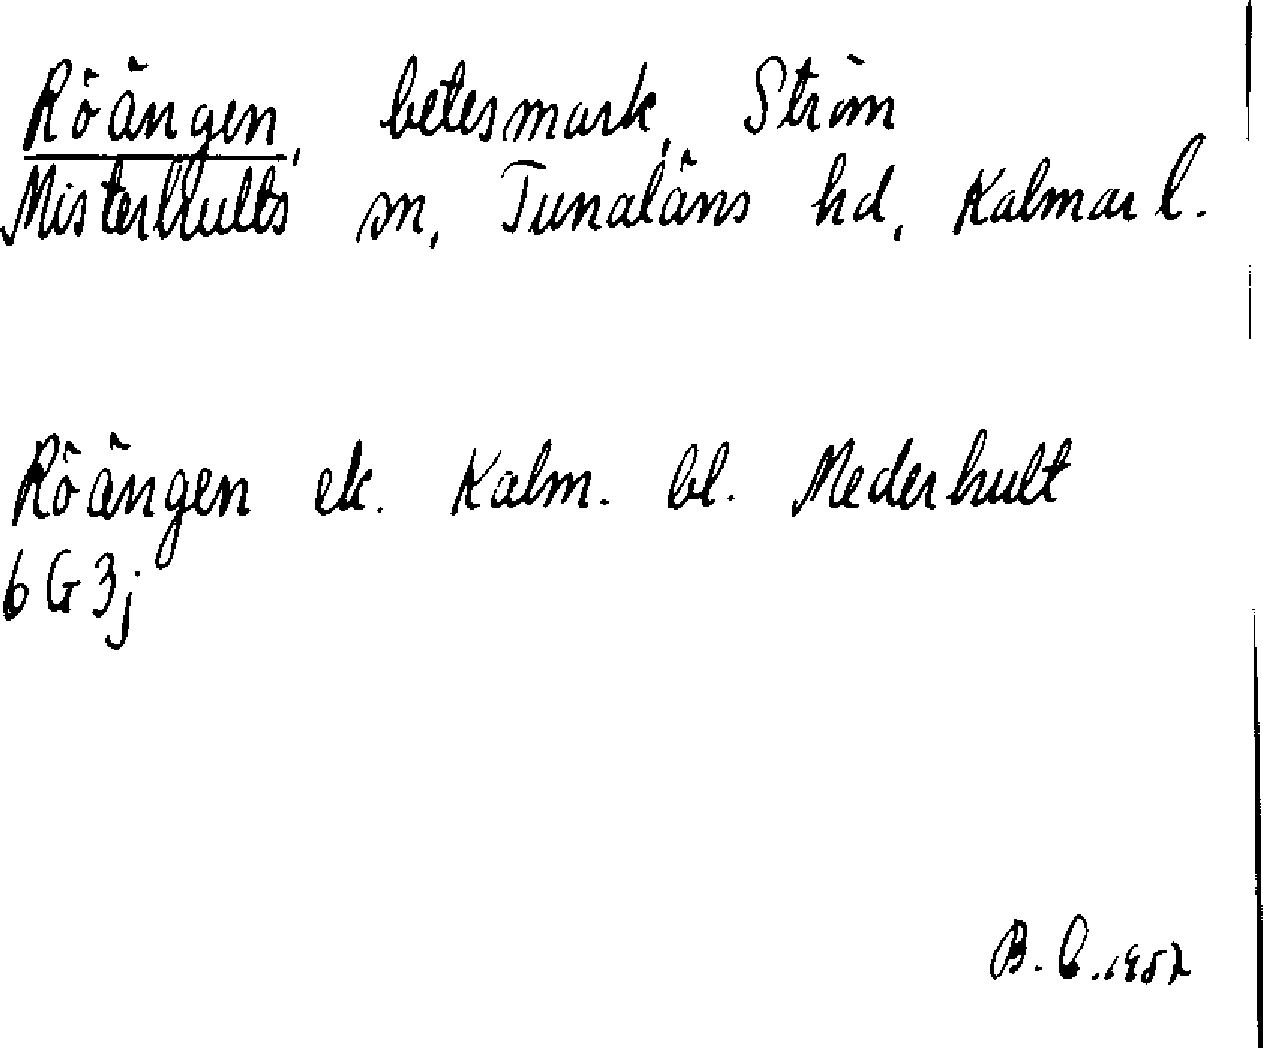 Röängen, betesmark, Ström
Misterhults sn, Tunaläns hd, Kalmar l.
Röängen ek. Kalm. bl. Mederhult
6G3j
B. C. 1952